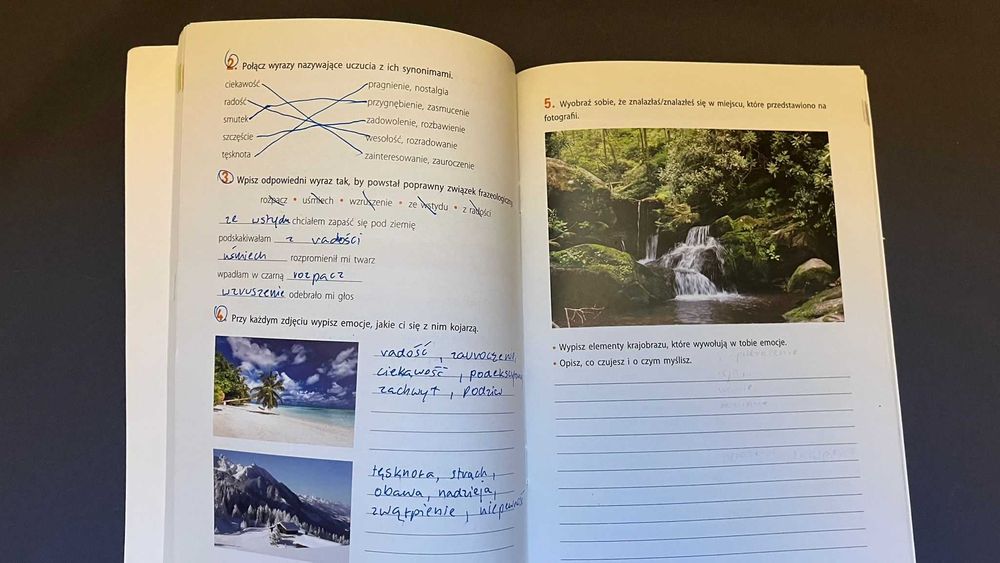 2. Połącz wyrazy nazywające uczucia z ich synonimami.
ciekawość pragnienie, nostalgia
radość przygnębienie, zasmucenie
smutek zadowolenie, rozbawienie
szczęście wesołość, rozradowanie
tęsknota zainteresowanie, zauroczenie
3. Wpisz odpowiedni wyraz tak, by powstał poprawny związek frazeologiczny.
rozpacz • uśmiech • wzruszenie • ze wstydu • z radości
ze wstydu chciałem zapaść się pod ziemię
podskakiwałam z radości
uśmiech rozpromienił mi twarz
wpadłam w czarną rozpacz
wzruszenie odebrało mi głos
4. Przy każdym zdjęciu wypisz emocje, jakie ci się z nim kojarzą.
radość, zauroczenie,
ciekawość,
zachwyt, podziw
tęsknota, strach,
obawa, nadzieja,
zwątpienie, niepewność
5. Wyobraź sobie, że znalazłaś/znalazłeś się w miejscu, które przedstawiono na
fotografii.
• Wypisz elementy krajobrazu, które wywołują w tobie emocje.
• Opisz, co czujesz i o czym myślisz.